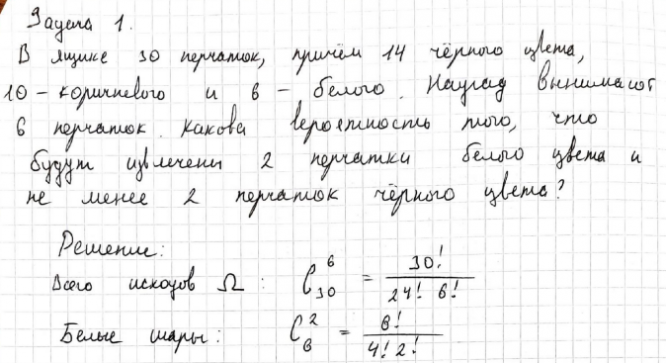 Задача 1.
В ящике 30 перчаток, причём 14 чёрного цвета,
10 - коричневого и 6 - белого. Наугад вынимают
6 перчаток. Какова вероятность того, что
будут извлечены 2 перчатки белого цвета и
не менее 2 перчаток чёрного цвета?
Решение:
Всего исходов Ω : C_30^6 = 30! / (24! 6!)
Белые шары : C_6^2 = 6! / (4! 2!)